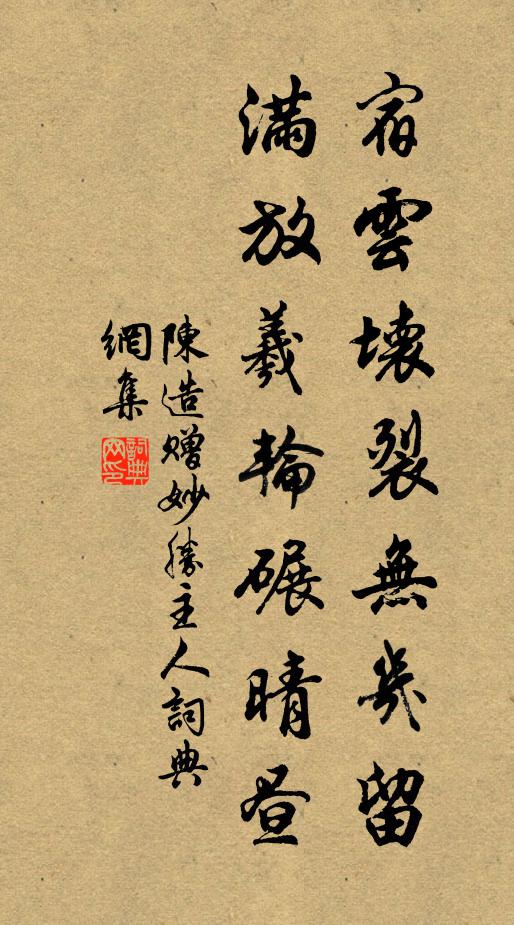 宿雲壞裂無幾留
滿放羲輪碾晴昼
陳造赠妙勝主人詞典
網集
詞典
网印